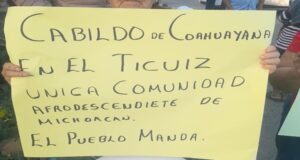 CABILDO DE COAHUAYANA
EN EL TICUIZ
UNICA COMUNIDAD
AFRODESCENDIETE DE
MICHOACAN.
EL PUEBLO MANDA.